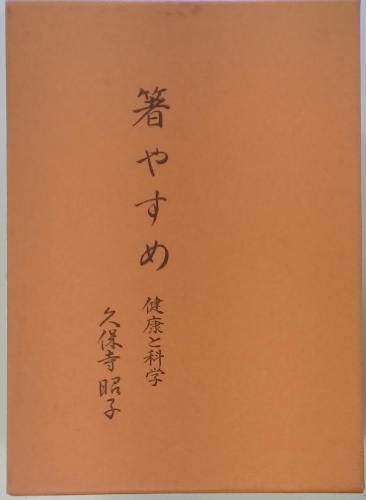 箸やすめ
健康と科学
久保寺昭子